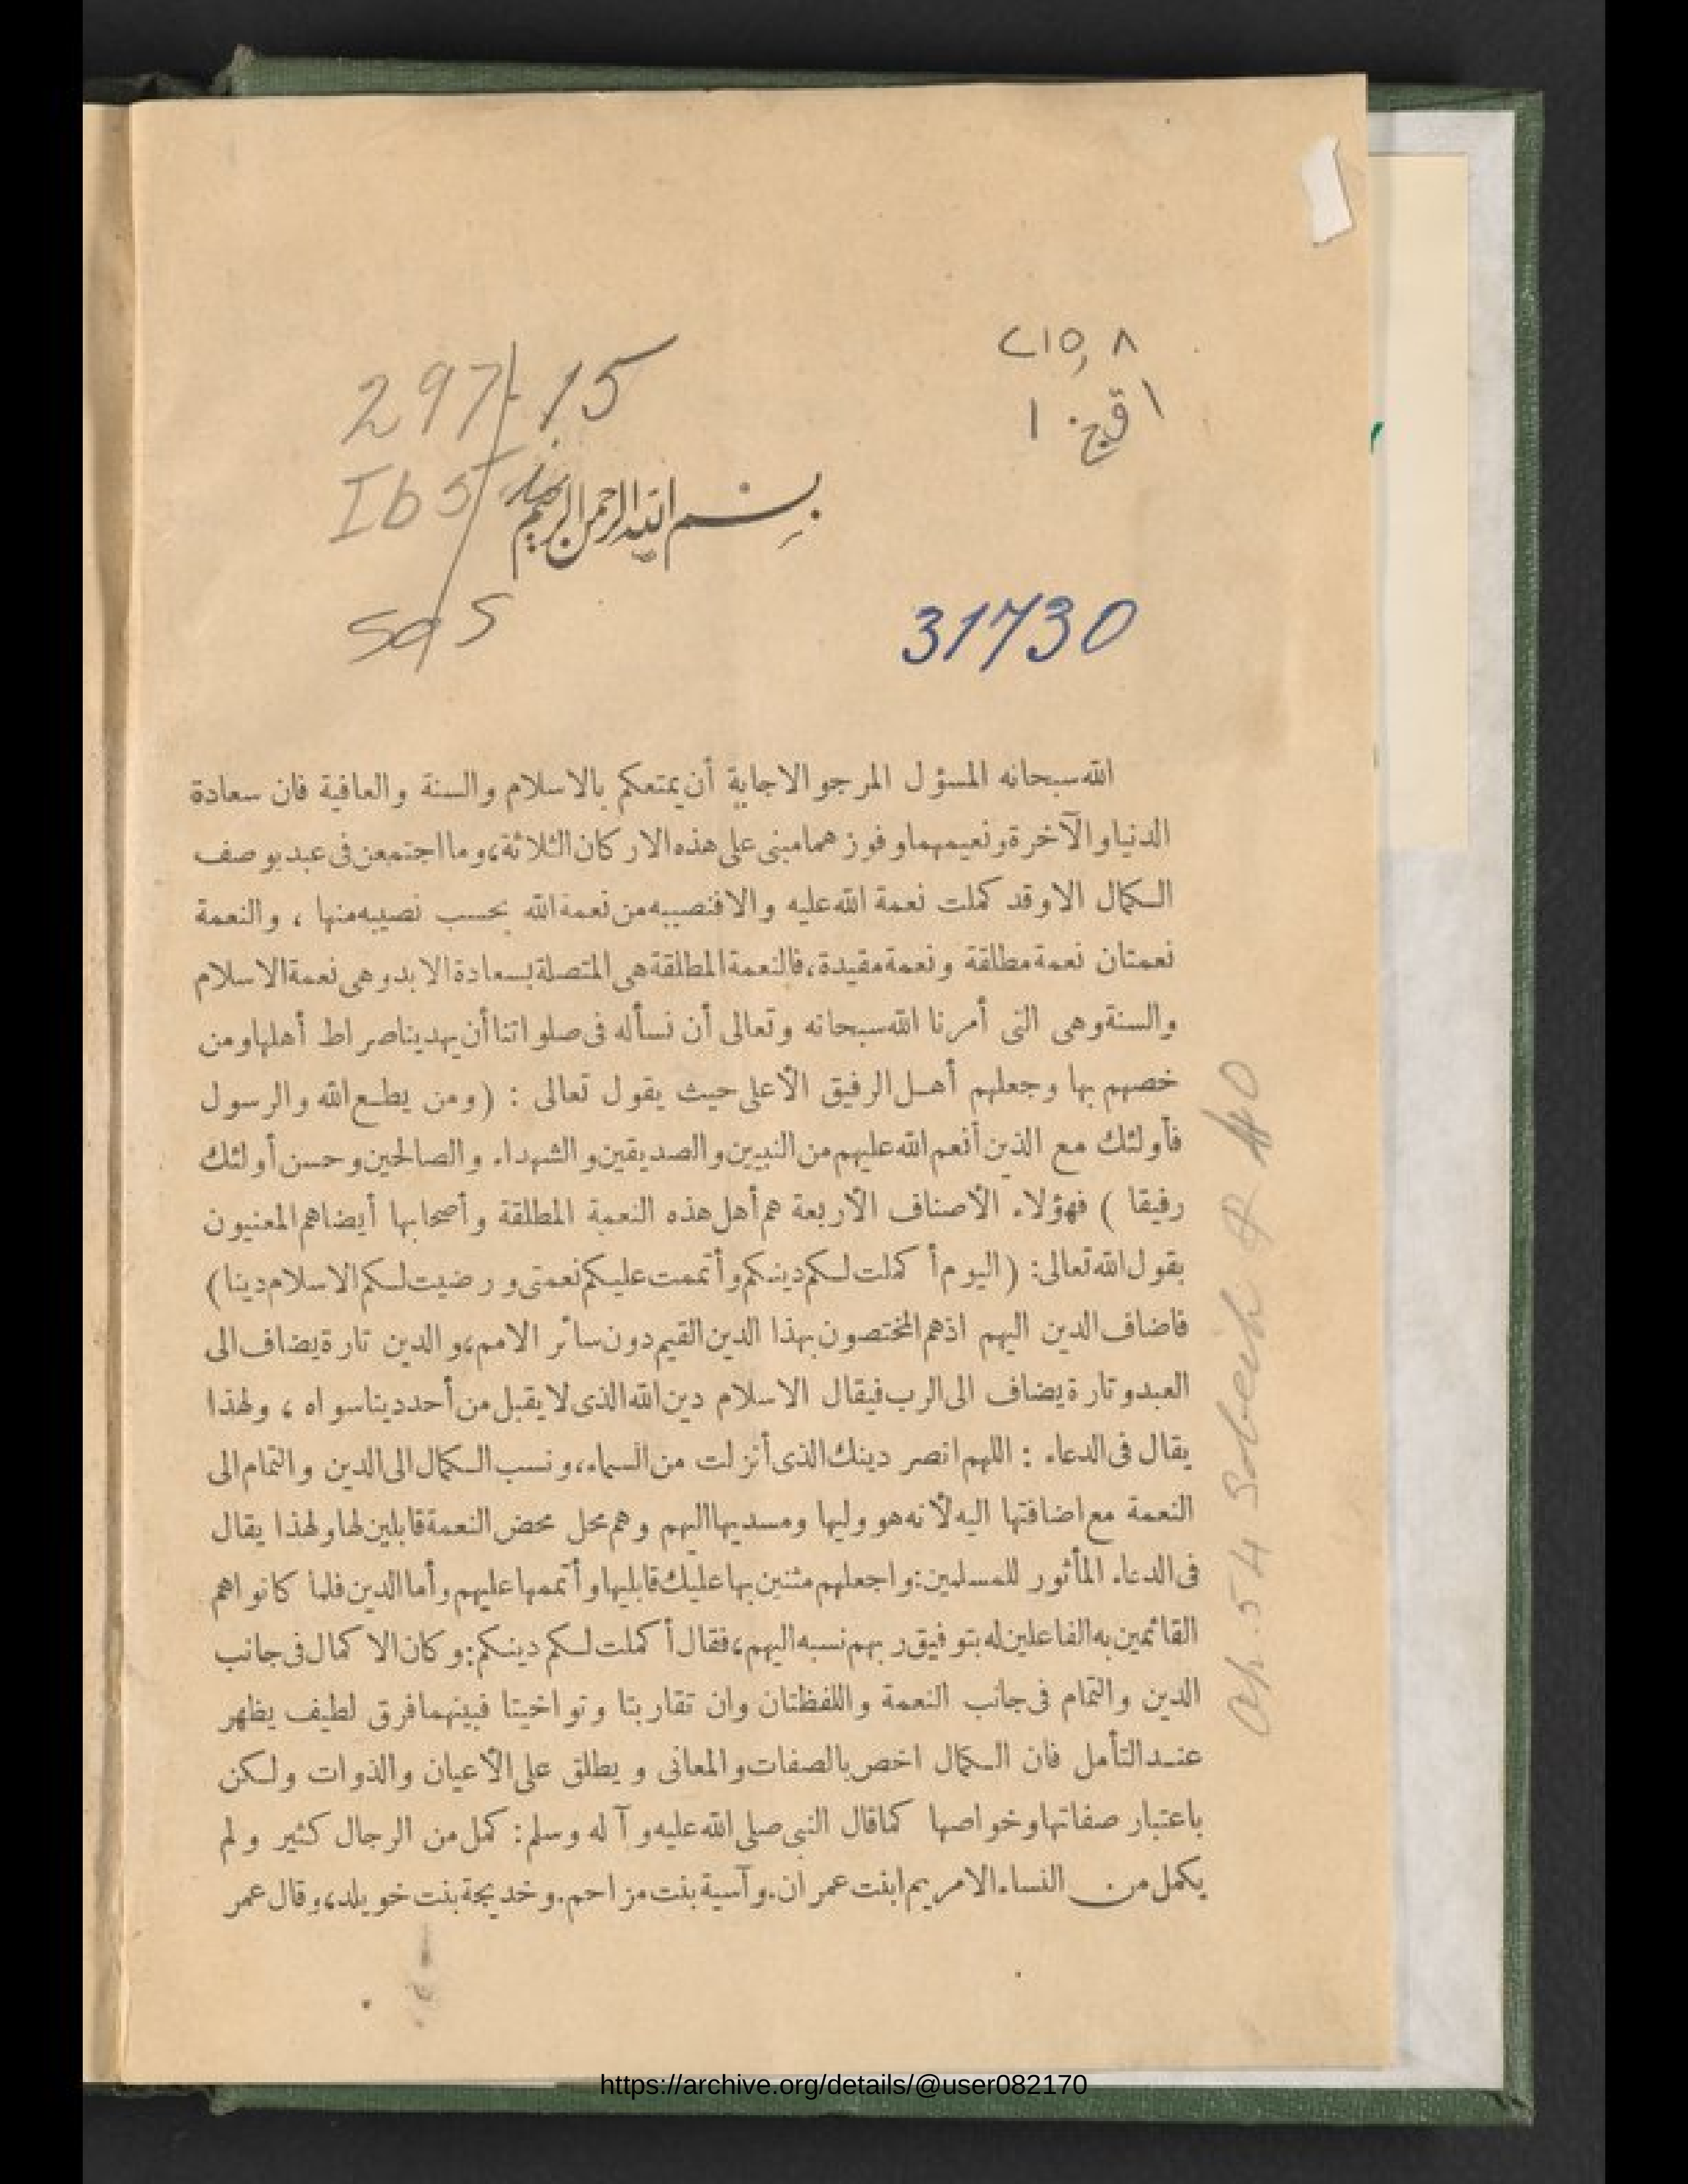 ٢١٥,٨
١ ق ج ١
297.15
Ib5
Sa5
بسم الله الرحمن الرحيم
31730
الله سبحانه المسؤل المرجو الاجابة أن يمتعكم بالاسلام والسنة والعافية فان سعادة
الدنيا والآخرة ونعيمهما وفوزهما مبنى على هذه الاركان الثلاثة، وما اجتمعن فى عبد بوصف
الكمال الا وقد كملت نعمة الله عليه والا فنصيبه من نعمة الله بحسب نصيبه منها ، والنعمة
نعمتان نعمة مطلقة ونعمة مقيدة، فالنعمة المطلقة هى المتصلة بسعادة الابد وهى نعمة الاسلام
والسنة وهى التى أمرنا الله سبحانه وتعالى أن نسأله فى صلواتنا أن يهدينا صراط أهلها ومن
خصهم بها وجعلهم أهل الرفيق الأعلى حيث يقول تعالى : (ومن يطع الله والرسول
فأولئك مع الذين أنعم الله عليهم من النبيين والصديقين والشهداء والصالحين وحسن أولئك
رفيقا ) فهؤلاء الأصناف الأربعة هم أهل هذه النعمة المطلقة وأصحابها أيضا هم المعنيون
بقول الله تعالى: (اليوم أكملت لكم دينكم وأتممت عليكم نعمتى ورضيت لكم الاسلام دينا)
فاضاف الدين اليهم اذ هم المختصون بهذا الدين القيم دون سائر الامم، والدين تارة يضاف الى
العبد وتارة يضاف الى الرب فيقال الاسلام دين الله الذى لا يقبل من أحد دينا سواه ، ولهذا
يقال فى الدعاء : اللهم انصر دينك الذى أنزلت من السماء، ونسب الكمال الى الدين والتمام الى
النعمة مع اضافتها اليه لأنه هو وليها ومسديها اليهم وهم محل محض النعمة قابلين لها ولهذا يقال
فى الدعاء المأثور للمسلمين: واجعلهم مثنين بها عليك قابليها وأتممها عليهم وأما الدين فلما كانوا هم
القائمين به الفاعلين له بتوفيق ربهم نسبه اليهم، فقال أكملت لكم دينكم: وكان الاكمال فى جانب
الدين والتمام فى جانب النعمة واللفظتان وان تقاربتا وتواخيتا فبينهما فرق لطيف يظهر
عند التأمل فان الكمال اخص بالصفات والمعانى ويطلق على الأعيان والذوات ولكن
باعتبار صفاتها وخواصها كما قال النبى صلى الله عليه وآله وسلم: كمل من الرجال كثير ولم
يكمل من النساء الا مريم ابنت عمران. وآسية بنت مزاحم. وخديجة بنت خويلد، وقال عمر
https://archive.org/details/@user082170